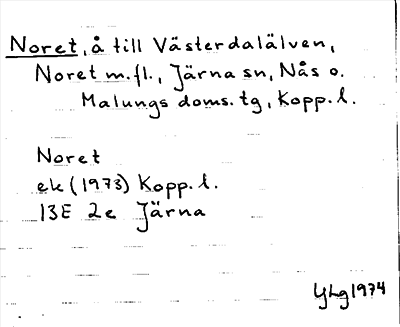 Noret, å till Västerdalälven,
Noret m.fl., Järna sn, Nås o.
Malungs doms. tg, Kopp. l.
Noret
ek (1973) Kopp. l.
13E 2e Järna
YLg 1974